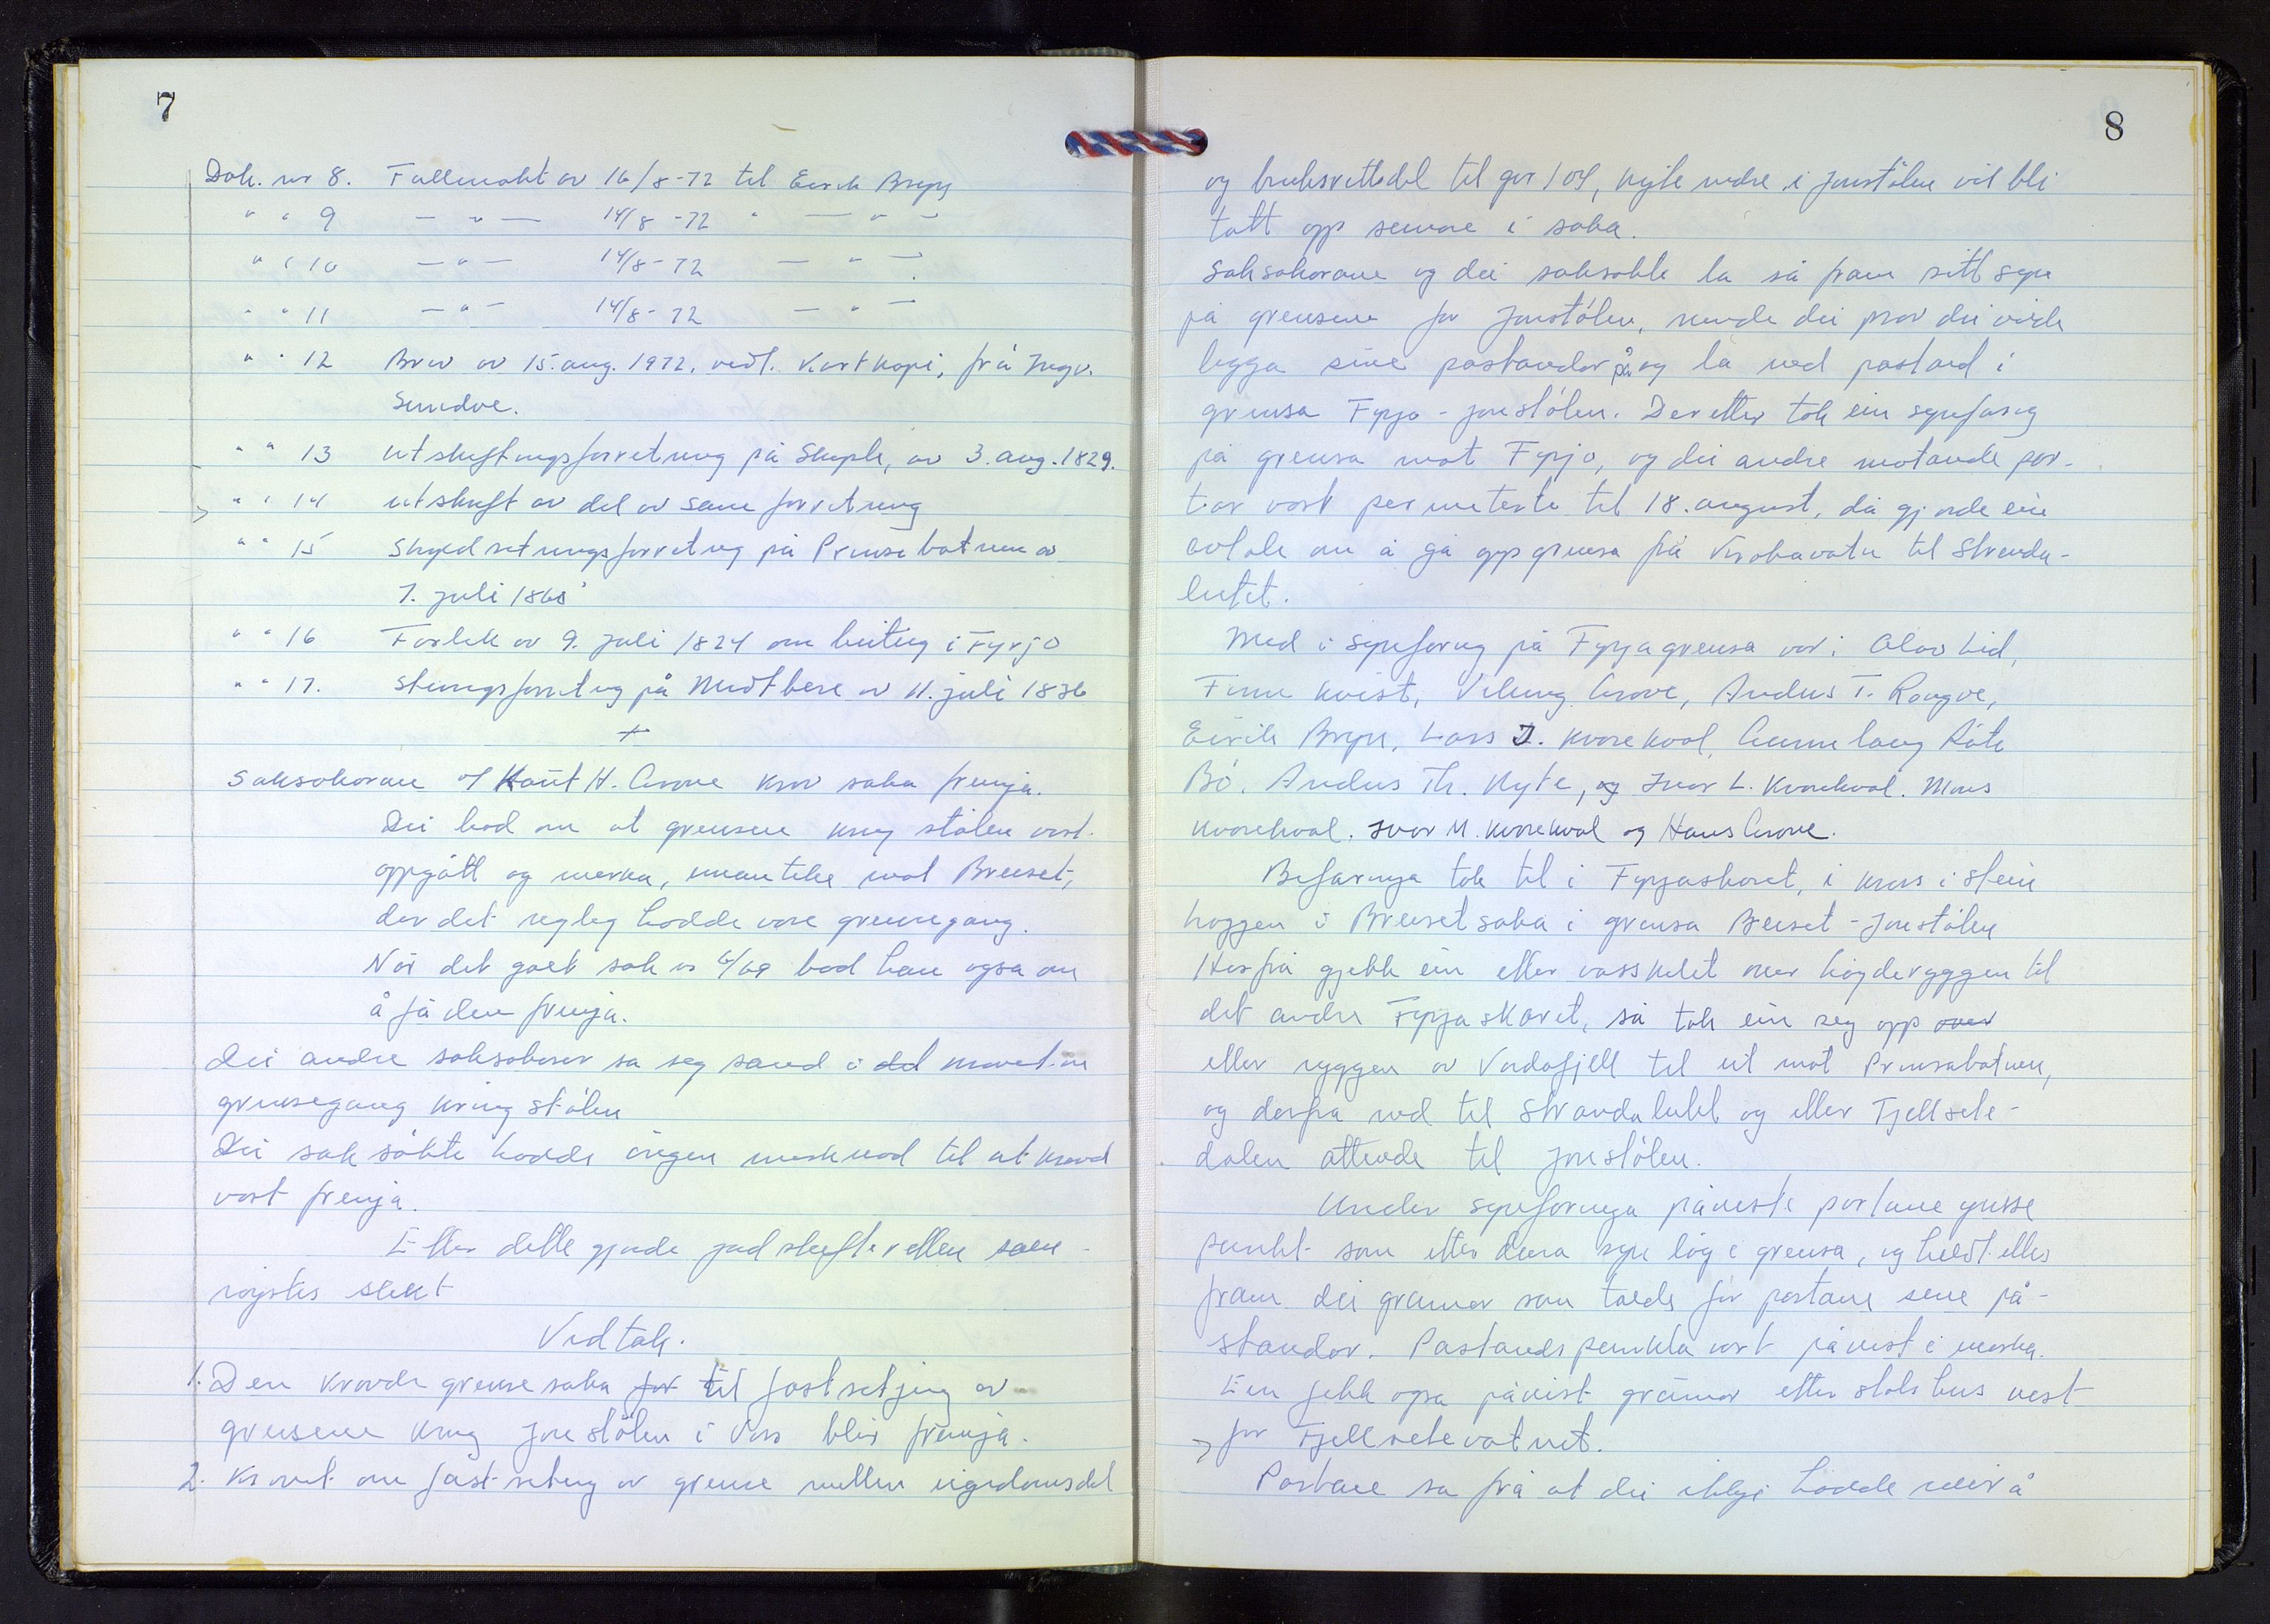 7
Dok. nr 8. Fullmakt av 16/8-72 til Eirik Bryn
" " 9 — " — 14/8-72 " — " —
" " 10 — " — 14/8-72 — " —
" " 11 — " — 14/8-72 — "
" " 12 Brev av 15. aug. 1972, vedl. Kartkopi, frå Ingv.
Sundve.
" " 13 Utskiftingsforretning på Skiple, av 3. aug. 1829.
" " 14 utskrift av del av same forretning
" " 15 Skyldsetningsforretning på Prinsabotnen av
7. juli 1868
" " 16 Forlik av 9. juli 1824 om beiting i Fyrjo
" " 17. Steingsforretning på Midtbere av 11. juli 1836
+
Saksøkarane v/ Knut H. Grove krov saka fremja.
Dei bad om at grensene kring stølen vart
oppgått og merka, unnateke mot Breiset,
der det regleg hadde vore grensegang.
Når det galt sak nr 6/69 bad han også om
å få den fremja.
Dei andre saksøkerar sa seg samd i det kravet om
grensegang kring stølen
Dei saksøkte hadde ingen merknad til at kravd
vart fremja.
Etter dette gjorde jordskifteretten sam-
røystes slikt
Vedtak.
1. Den kravde grensesaka for til fastsetjing av
grensene kring Jonstølen i Voss blir fremja.
2. Kravet om fastsetting av grense mellom eigedomsdel
8
og bruksrettsdel til gnr 104, Kyte nedre i Jonstølen vil bli
tatt opp seinare i saka.
Saksøkarane og dei saksøkte la så fram sitt syn
på grensene for Jonstølen, nemde dei prov dei ville
legga sine påstandar på og la ned påstand i
grensa Fyrjo - Jonstølen. Deretter tok ein synfaring
på grensa mot Fyrjo, og dei andre møtande par-
tar vart permiterte til 18. august, då gjorde ein
avtale om å gå opp grensa frå Krokavatn til Stranda-
lutet.
Med i synfaring på Fyrjagrensa var: Olav Lid,
Finn Kvist, Viking Grove, Anders T. Rongve,
Eirik Bryn, Lars J. Kvarekval, Gunnlaug Røte
Bø, Anders Th. Kyte, og Ivar L. Kvarekval. Mons
Kvarekval. Ivar M. Kvarekval og Hans Grove.
Befaringa tok til i Fyrjaskaret, i kross i stein
hoggen i Breisetsaka i grensa Breiset - Jonstølen
Herfrå gjekk ein etter vasskilet over høgderyggen til
det andre Fyrjaskaret, så tok ein seg opp over
etter ryggen av Vardafjell til ut mot Prinsabotnen,
og derfra ned til Strandalutet og etter Fjellsete-
dalen attende til Jonstølen.
Under synfaringa påviste partane ymsse
punkt som etter deira syn låg i grensa, og heldt elles
fram dei grunnar som talde for partane sine på-
standar. Påstandspunkta vart påvist i marka.
Ein fekk også påvist grunnar etter støls hus vest
for Fjellsetevatnet.
Partane sa frå at dei ikkje hadde meir å